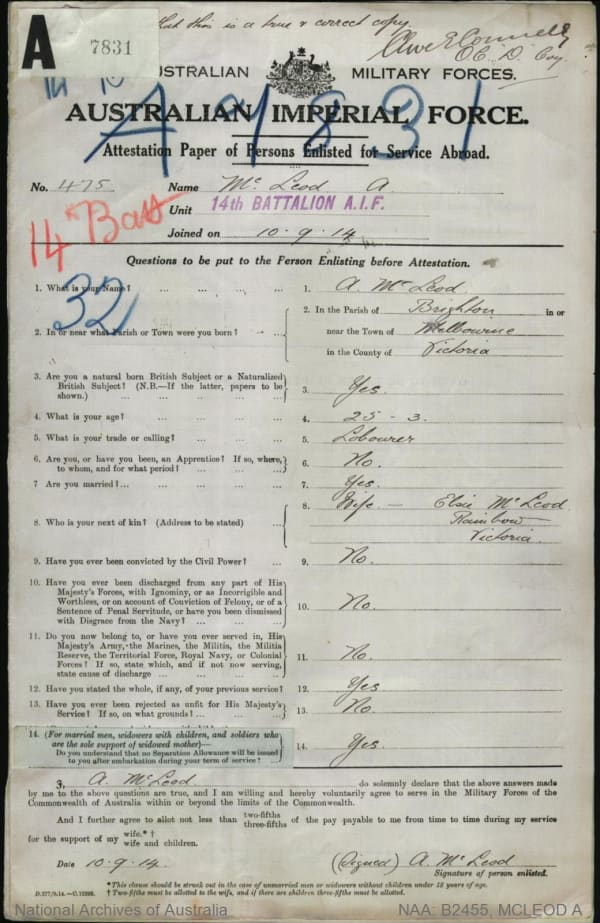 that this is a true & correct copy.
O.C. D. Coy
A
7831
AUSTRALIAN MILITARY FORCES.
A 7831
AUSTRALIAN IMPERIAL FORCE.
Attestation Paper of Persons Enlisted for Service Abroad.
No. 475 Name McLeod A
Unit 14th BATTALION A.I.F.
14 Batt
Joined on 10.9.14
Questions to be put to the Person Enlisting before Attestation.
32
1. What is your Name? ... ... ... ... 1. A. McLeod.
2. In or near what Parish or Town were you born? ... ... 2. In the Parish of Brighton in or
near the Town of Melbourne
in the County of Victoria
3. Are you a natural born British Subject or a Naturalized
British Subject? (N.B.—If the latter, papers to be
shown.) ... ... ... ... 3. Yes.
4. What is your age? ... ... ... ... 4. 25 - 3.
5. What is your trade or calling? ... ... ... 5. Labourer
6. Are you, or have you been, an Apprentice? If so, where,
to whom, and for what period? ... ... ... 6. No.
7 Are you married?... ... ... ... ... 7. Yes.
8. Who is your next of kin? (Address to be stated) ... 8. Wife — Elsie McLeod
Rainbow
Victoria.
9. Have you ever been convicted by the Civil Power? ... 9. No.
10. Have you ever been discharged from any part of His
Majesty's Forces, with Ignominy, or as Incorrigible and
Worthless, or on account of Conviction of Felony, or of a
Sentence of Penal Servitude, or have you been dismissed
with Disgrace from the Navy? ... ... ... 10. No.
11. Do you now belong to, or have you ever served in, His
Majesty's Army, the Marines, the Militia, the Militia
Reserve, the Territorial Force, Royal Navy, or Colonial
Forces? If so, state which, and if not now serving,
state cause of discharge ... ... ... ... 11. No.
12. Have you stated the whole, if any, of your previous service? 12. Yes
13. Have you ever been rejected as unfit for His Majesty's
Service? If so, on what grounds? ... ... ... 13. No.
14. (For married men, widowers with children, and soldiers who
are the sole support of widowed mother)—
Do you understand that no Separation Allowance will be issued
to you after embarkation during your term of service? 14. Yes.
I, A. McLeod do solemnly declare that the above answers made
by me to the above questions are true, and I am willing and hereby voluntarily agree to serve in the Military Forces of the
Commonwealth of Australia within or beyond the limits of the Commonwealth.
And I further agree to allot not less than two-fifths three-fifths of the pay payable to me from time to time during my service
for the support of my wife.* †
wife and children.
Date 10.9.14. (Signed) A. McLeod
Signature of person enlisted.
*This clause should be struck out in the case of unmarried men or widowers without children under 18 years of age.
D.277/9.14.—C.12398. † Two-fifths must be allotted to the wife, and if there are children three-fifths must be allotted.
National Archives of Australia NAA: B2455, MCLEOD A